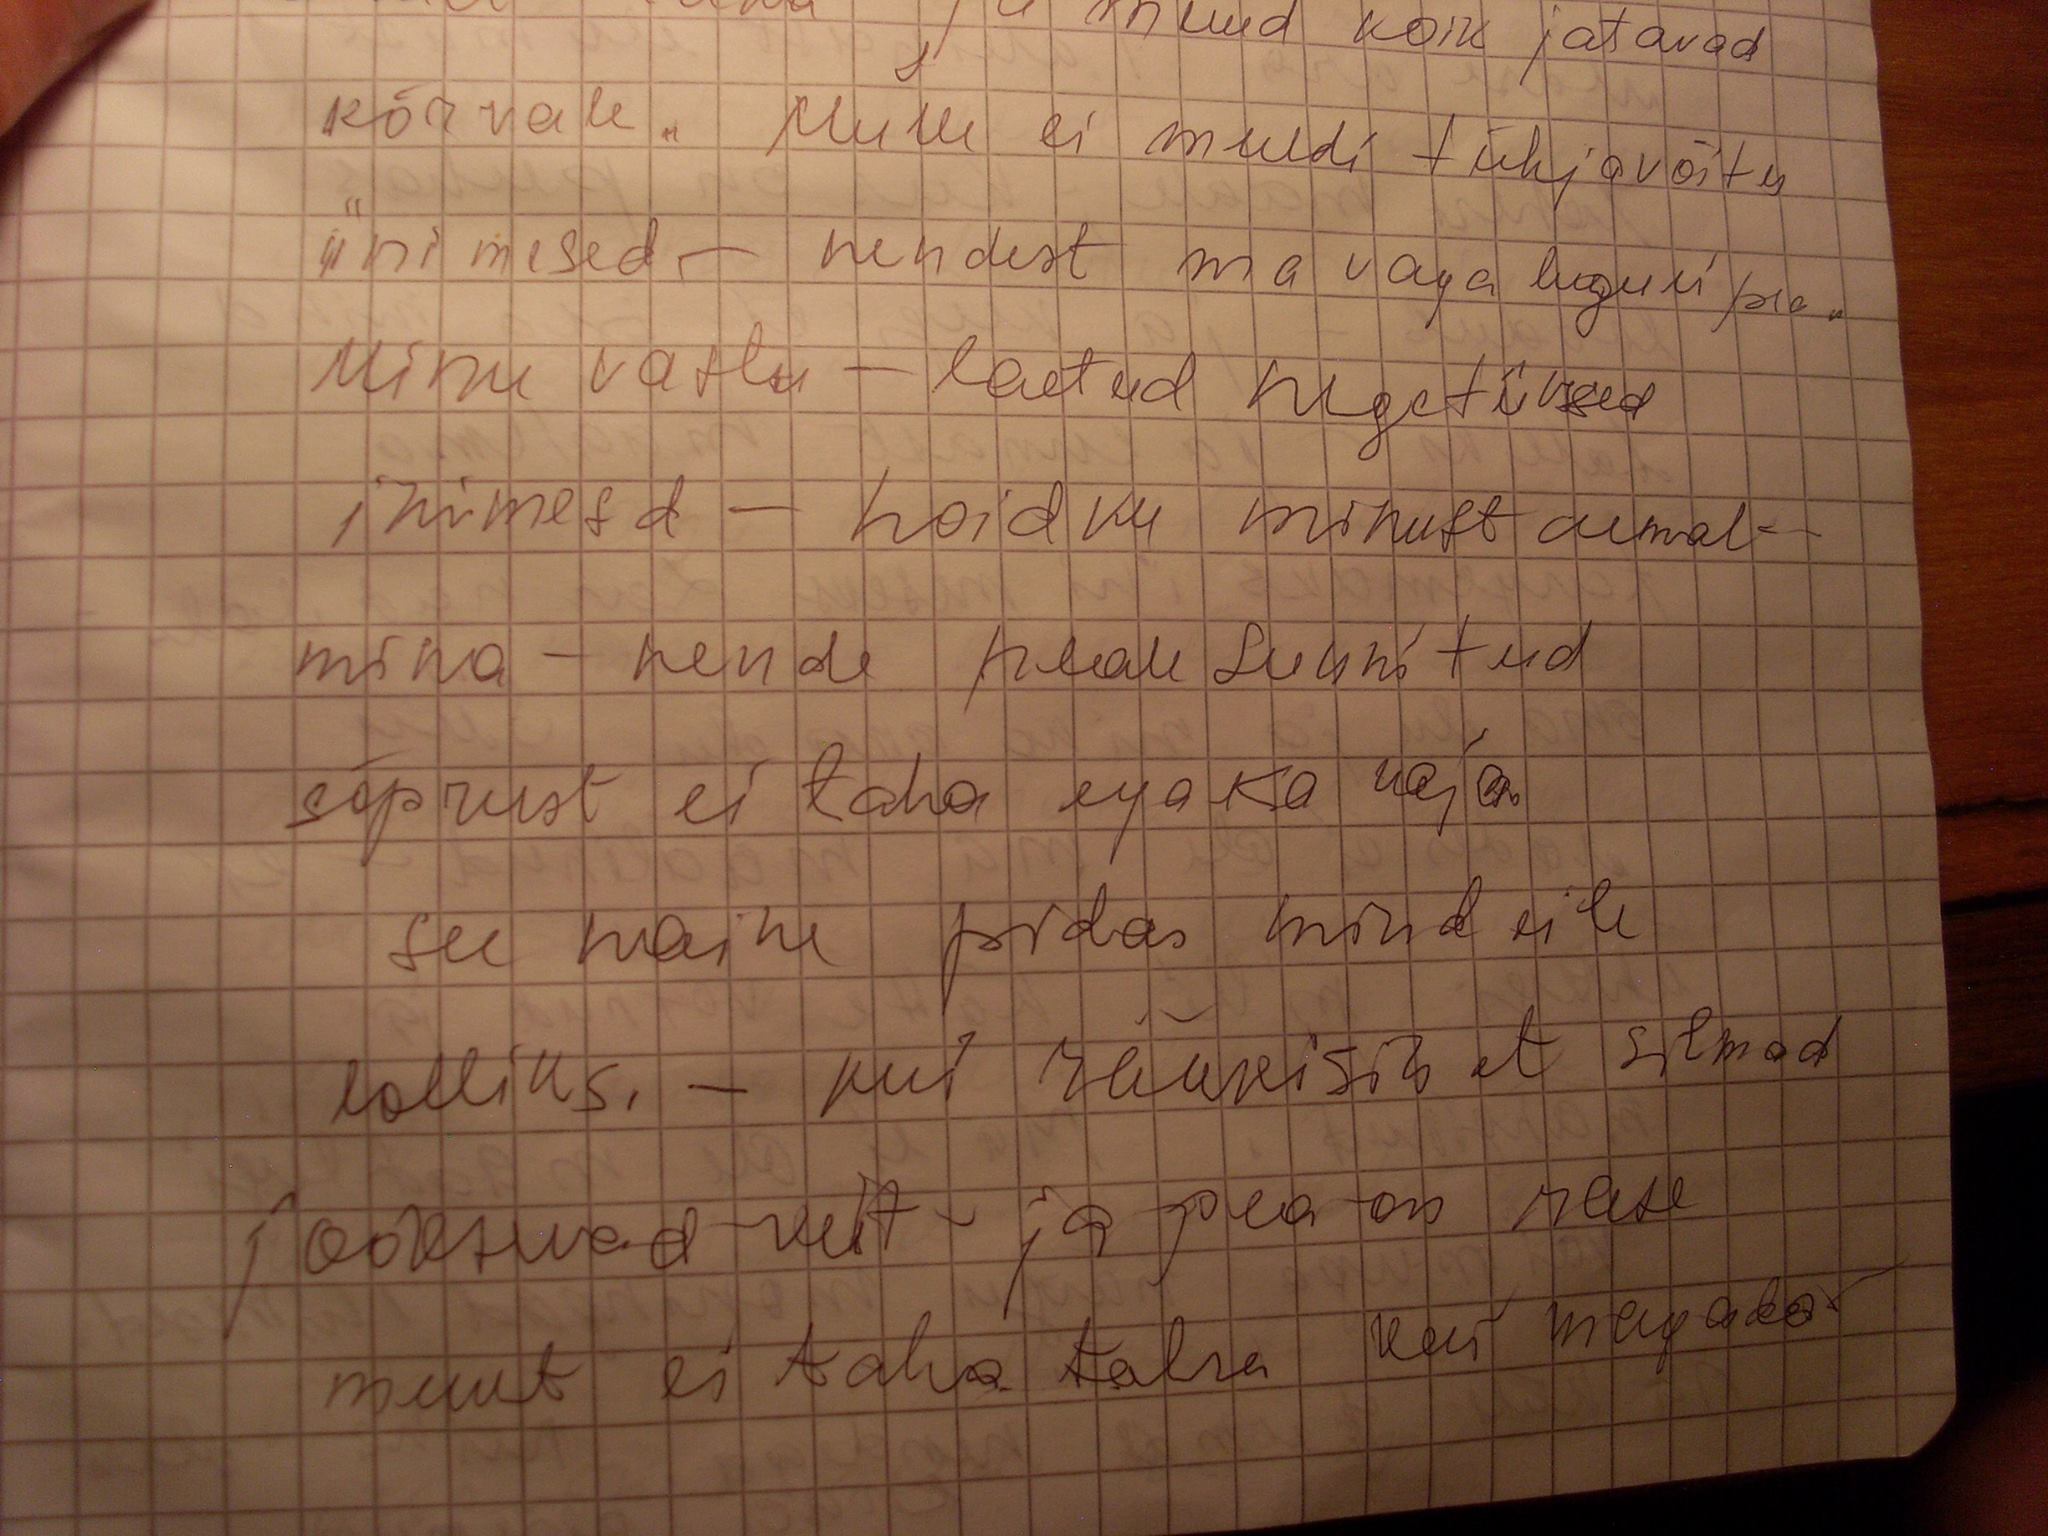 ja muud koik jatavad
kõrvale„ Mulle ei meeldi tühjavõitu
inimesed — nendest ma vaga lugu ei pea„
Minu vastu — laetud negatiivsed
inimesd — hoidku minust eemal —
mina — nende peale sunnitud
sõprust ei taha ega ka vaja
see naine pidas mind eile
lolliks. — kui rääkisin et silmad
jooksevad vett - ja pea on raske
must ei taha talra kui magada